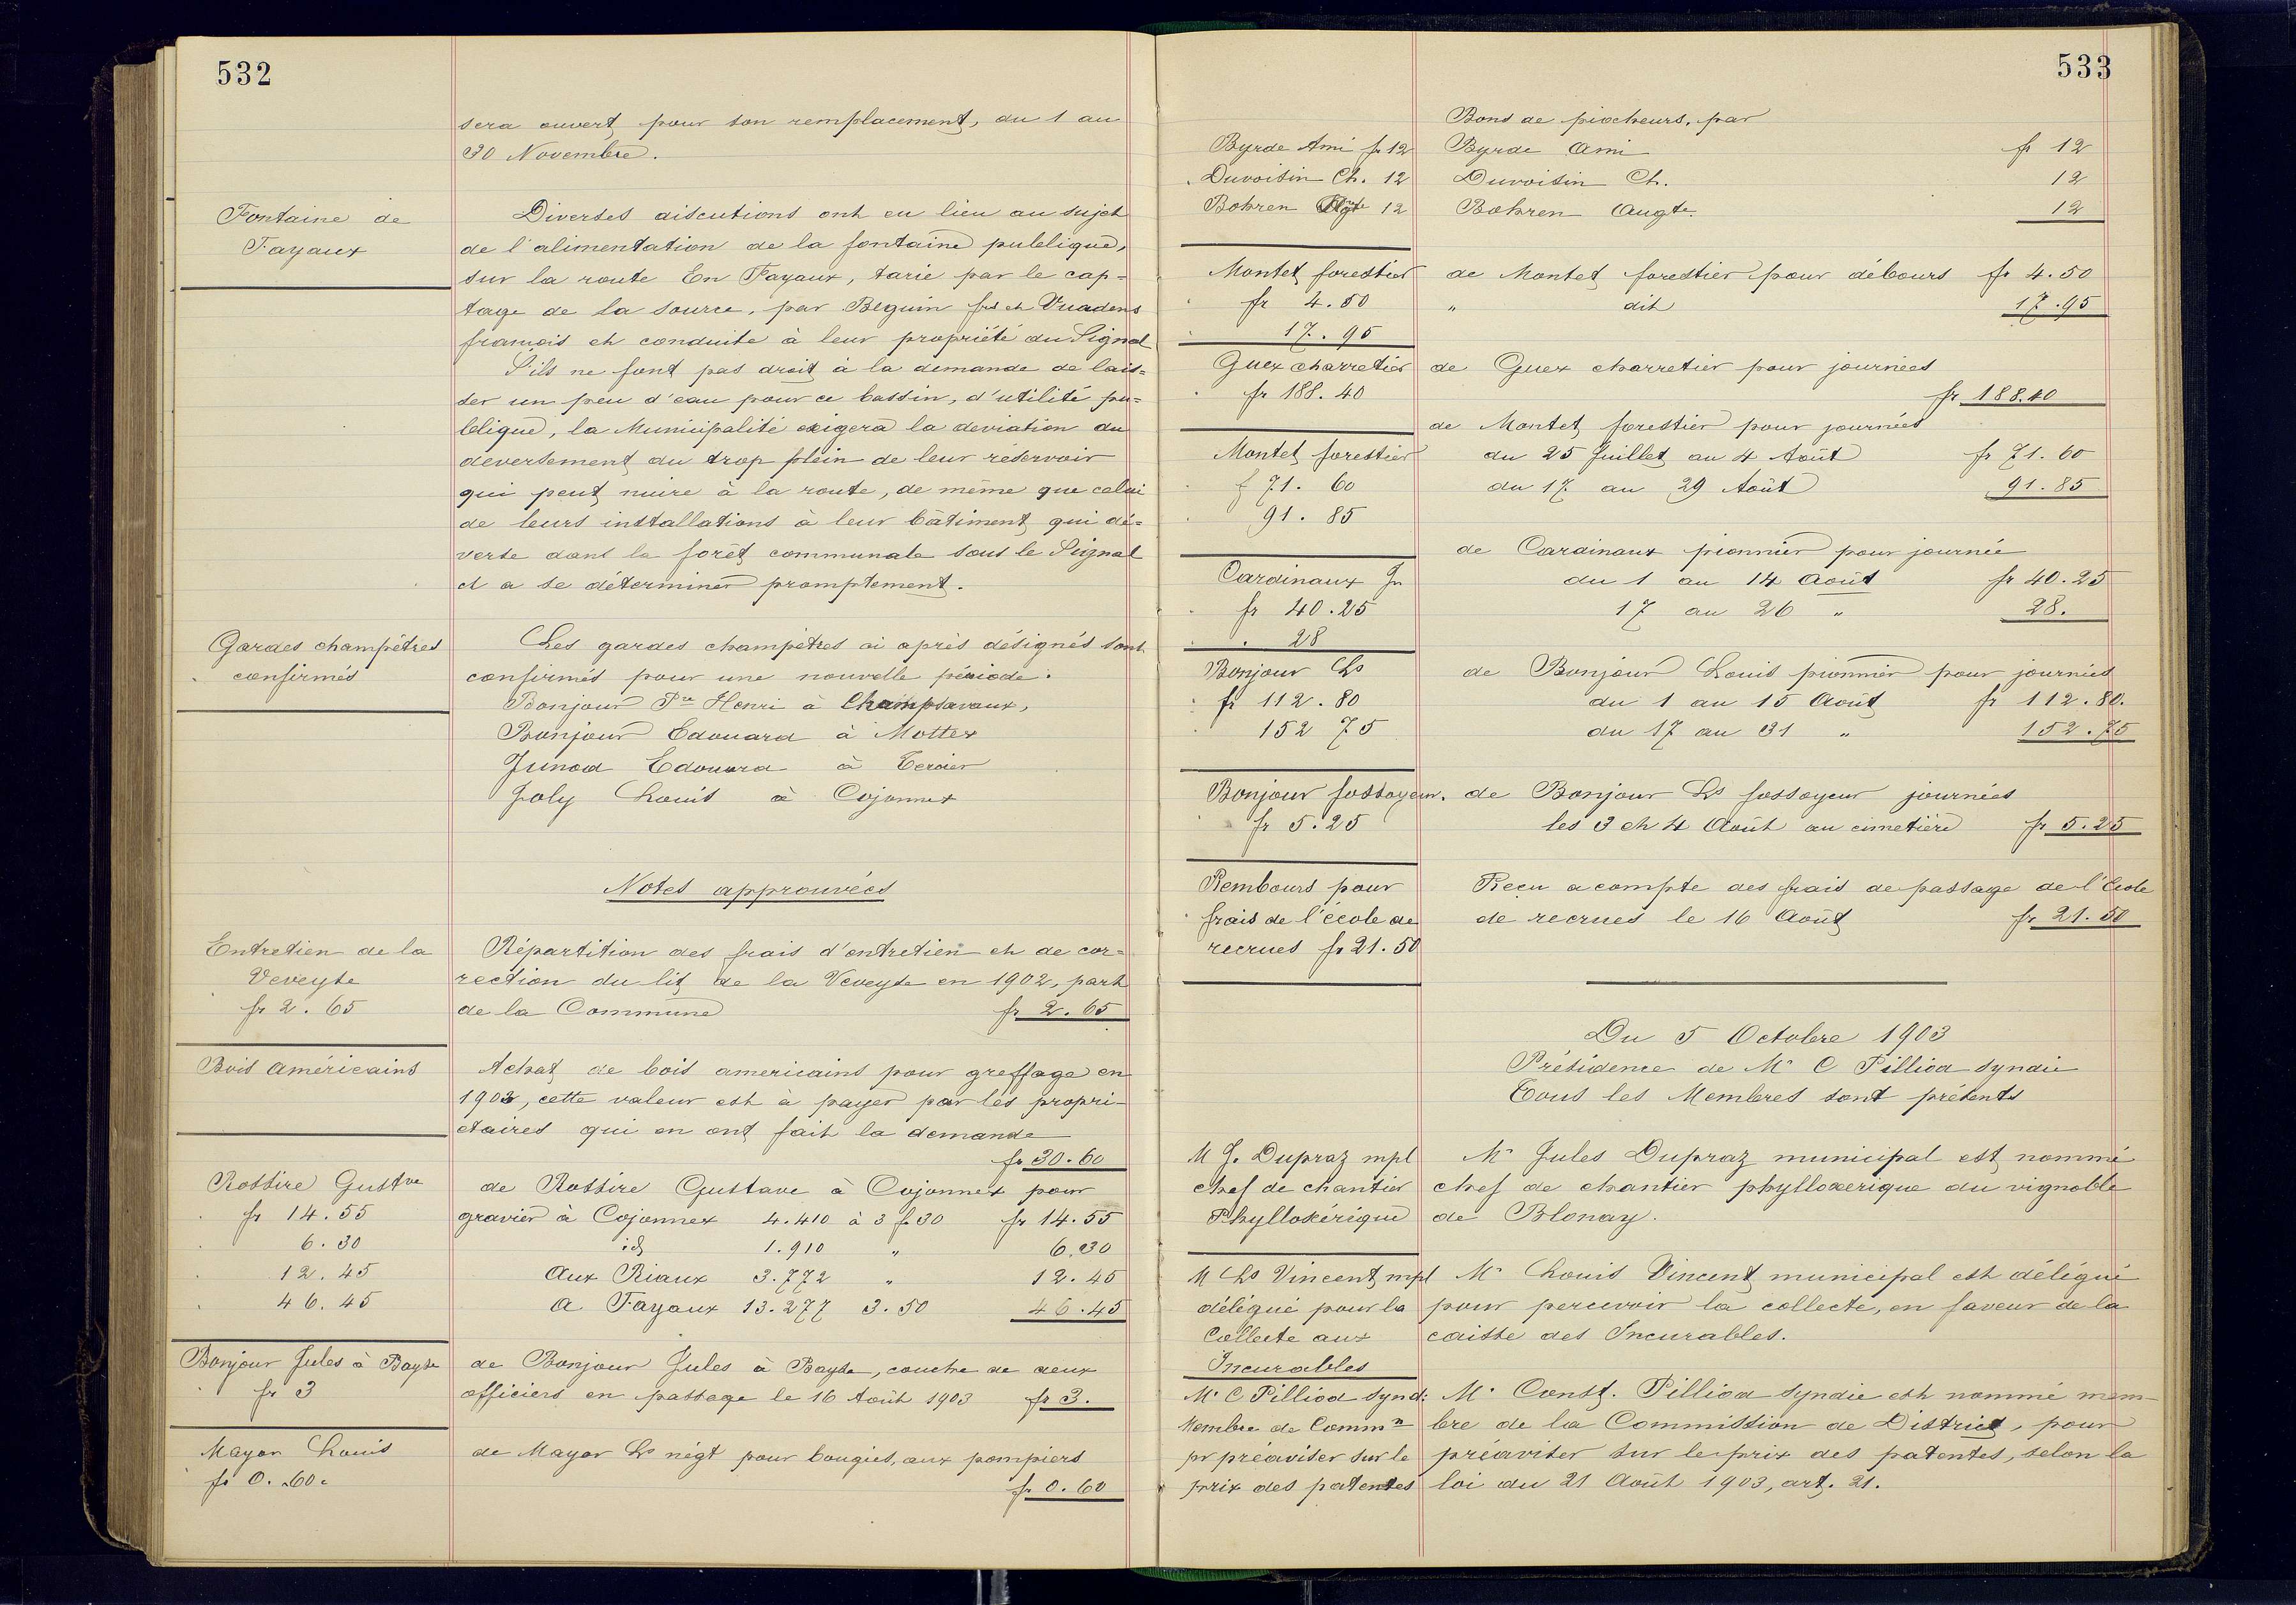 532
sera ouvert pour son remplacement, du 1 au
30 Novembre.
Fontaine de
Fayaux
Diverses discutions ont eu lieu au sujet
de l'alimentation de la fontaine publique,
sur la route En Fayaux, tarie par le cap=
tage de la source, par Beguin frs et Vuadens
francois et conduite à leur propriété du Signal
S'ils ne font pas droit à la demande de lais=
ser un peu d'eau pour ce bassin, d'utilité pu=
blique, la Municipalité exigera la deviation du
deversement du trop plein de leur réservoir
qui peut nuire à la route, de même que celui
de leurs installations à leur bâtiment qui dé=
verse dans la forêt communale sous le Signal
et a se déterminer promptement.
Gardes champêtres
confirmés
Les gardes champêtres ci après désignés sont
confirmés pour une nouvelle période.
Bonjour Henri à Champsavaux,
Bonjour Edouard à Mottex
Junod Edouard à Tercier
Joly Louis à Cojonnex
Notes approuvées
Entretien de la
Veveyse
fr 2. 65
Répartition des frais d'entretien et de cor=
rection du lit de la Veveyse en 1902, part
de la Commune fr 2. 65
Bois américains
Achat de bois americains pour greffage en
1903, cette valeur est à payer par les propri-
etaires qui en ont fait la demande
fr 30. 60
Rossire Gustve
fr 14. 55
6. 30
12. 45
46. 45
de Rossire Gustave à Cojonnex pour
gravier à Cojonnex 4.410 à 3 f 30 fr 14. 55
id 1.910 " 6. 30
Aux Riaux 3.772 " 12. 45
A Fayaux 13.277 3. 50 46. 45
Bonjour Jules à Bayse
fr 3
de Bonjour Jules à Bayse, couche de deux
officiers en passage le 16 Août 1903 fr 3.
Mayor Louis
fr 0. 60.
de Mayor Ls négt pour bougies, aux pompiers
fr 0. 60
533
Bons de piocheurs, par
Byrde Ami fr 12
Duvoisin Ch. 12
Bohren Agte 12
Byrde Ami fr 12
Duvoisin Ch. 12
Bohren Augte. 12
Montet forestier
fr 4. 50
17. 95
de Montet forestier pour débours fr 4. 50
" dit 17. 95
Guex charretier
fr 188. 40
de Guex charretier pour journées
fr 188. 40
Montet forestier
f 71. 60
91. 85
de Montet forestier pour journées
du 25 Juillet au 4 Août fr 71. 60
du 17 au 29 Août 91. 85
Cardinaux
fr 40. 25
28
de Cardinaux pionnier pour journée
du 1 au 14 Août fr 40. 25
17 au 26 " 28.
Bonjour Ls
fr 112. 80
152 75
de Bonjour Louis pionnier pour journées
du 1 au 15 Août fr 112. 80.
du 17 au 31 " 152. 75
Bonjour fossoyeur.
fr 5. 25
de Bonjour Ls fossoyeur journées
les 3 et 4 Août au cimetière fr 5. 25
Rembours pour
frais de l'école de
recrues fr 21. 50
Recu acompte des frais de passage de l'Ecole
de recrues le 16 Août fr 21. 50
Du 5 Octobre 1903
Présidence de Mr C Pilliod syndic
Tous les Membres sont présents
M J. Dupraz mpl
chef de chantier
Phylloxérique
Mr Jules Dupraz municipal est nommé
chef de chantier phylloxerique du vignoble
de Blonay.
M Ls Vincent mpl
délégué pour la
Collecte aux
Incurables
Mr Louis Vincent municipal est délégué
pour percevoir la collecte, en faveur de la
caisse des Incurables.
Mr C Pilliod synd:
Membre de Commn
pr préaviser sur le
prix des patentes
Mr Const. Pilliod syndic est nommé mem-
bre de la Commission de District, pour
préaviser sur le prix des patentes, selon la
loi du 21 Août 1903, art. 21.